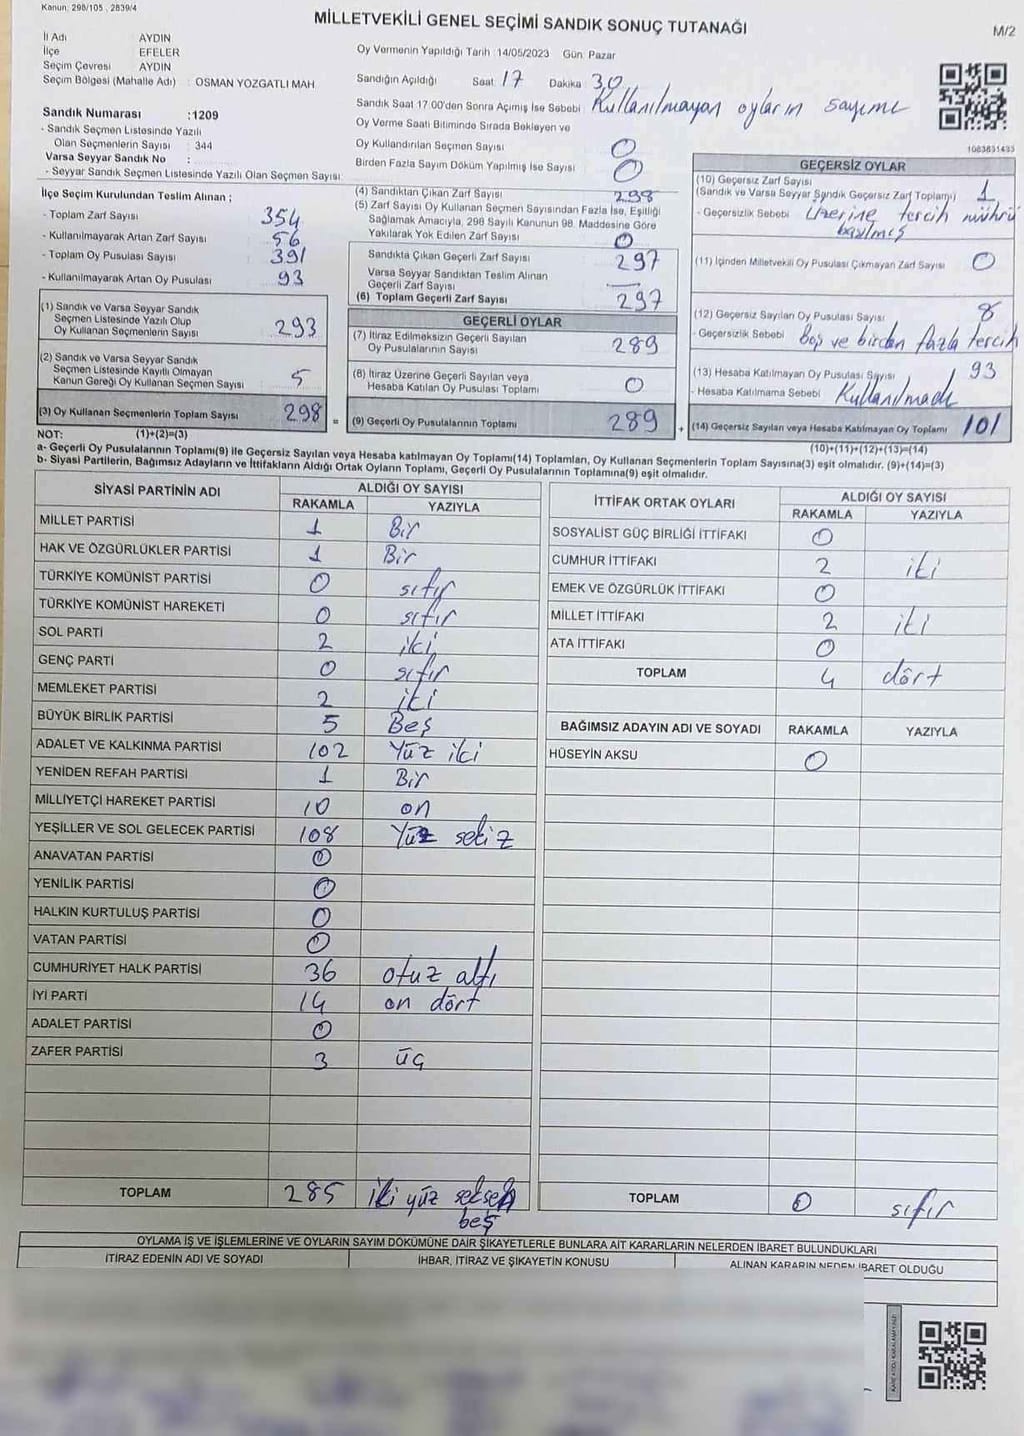 Kanun: 298/105 , 2839/4
MİLLETVEKİLİ GENEL SEÇİMİ SANDIK SONUÇ TUTANAĞI
M/2
İl Adı AYDIN
İlçe EFELER
Seçim Çevresi AYDIN
Seçim Bölgesi (Mahalle Adı) : OSMAN YOZGATLI MAH
Oy Vermenin Yapıldığı Tarih :14/05/2023 Gün: Pazar
Sandığın Açıldığı Saat: 17 Dakika 30
Sandık Saat 17:00'den Sonra Açımış İse Sebebi : Kullanılmayan oyların sayımı
Oy Verme Saati Bitiminde Sırada Bekleyen ve
Oy Kullandırılan Seçmen Sayısı 0
Birden Fazla Sayım Döküm Yapılmış İse Sayısı 0
Sandık Numarası :1209
- Sandık Seçmen Listesinde Yazılı
Olan Seçmenlerin Sayısı : 344
Varsa Seyyar Sandık No :
- Seyyar Sandık Seçmen Listesinde Yazılı Olan Seçmen Sayısı:
1083631433
İlçe Seçim Kurulundan Teslim Alınan ;
- Toplam Zarf Sayısı 354
- Kullanılmayarak Artan Zarf Sayısı 56
- Toplam Oy Pusulası Sayısı 391
- Kullanılmayarak Artan Oy Pusulası 93
(1) Sandık ve Varsa Seyyar Sandık
Seçmen Listesinde Yazılı Olup
Oy Kullanan Seçmenlerin Sayısı 293
(2) Sandık ve Varsa Seyyar Sandık
Seçmen Listesinde Kayıtlı Olmayan
Kanun Gereği Oy Kullanan Seçmen Sayısı 5
(3) Oy Kullanan Seçmenlerin Toplam Sayısı 298 =
(4) Sandıktan Çıkan Zarf Sayısı 298
(5) Zarf Sayısı Oy Kullanan Seçmen Sayısından Fazla İse, Eşitliği
Sağlamak Amacıyla, 298 Sayılı Kanunun 98. Maddesine Göre
Yakılarak Yok Edilen Zarf Sayısı 0
Sandıkta Çıkan Geçerli Zarf Sayısı 297
Varsa Seyyar Sandıktan Teslim Alınan
Geçerli Zarf Sayısı —
(6) Toplam Geçerli Zarf Sayısı 297
GEÇERLİ OYLAR
(7) İtiraz Edilmeksizin Geçerli Sayılan
Oy Pusulalarının Sayısı 289
(8) İtiraz Üzerine Geçerli Sayılan veya
Hesaba Katılan Oy Pusulası Toplamı 0
(9) Geçerli Oy Pusulalarının Toplamı 289 +
GEÇERSİZ OYLAR
(10) Geçersiz Zarf Sayısı
(Sandık ve Varsa Seyyar Sandık Geçersiz Zarf Toplamı) 1
- Geçersizlik Sebebi Üzerine tercih mührü
basılmış
(11) İçinden Milletvekili Oy Pusulası Çıkmayan Zarf Sayısı 0
(12) Geçersiz Sayılan Oy Pusulası Sayısı 8
- Geçersizlik Sebebi Boş ve birden fazla tercih
(13) Hesaba Katılmayan Oy Pusulası Sayısı 93
- Hesaba Katılmama Sebebi Kullanılmadı
(14) Geçersiz Sayılan veya Hesaba Katılmayan Oy Toplamı 101
NOT: (1)+(2)=(3)
(10)+(11)+(12)+(13)=(14)
a- Geçerli Oy Pusulalarının Toplamı(9) ile Geçersiz Sayılan veya Hesaba katılmayan Oy Toplamı(14) Toplamları, Oy Kullanan Seçmenlerin Toplam Sayısına(3) eşit olmalıdır. (9)+(14)=(3)
b- Siyasi Partilerin, Bağımsız Adayların ve İttifakların Aldığı Ortak Oyların Toplamı, Geçerli Oy Pusulalarının Toplamına(9) eşit olmalıdır.
SİYASİ PARTİNİN ADI ALDIĞI OY SAYISI
RAKAMLA YAZIYLA
MİLLET PARTİSİ 1 Bir
HAK VE ÖZGÜRLÜKLER PARTİSİ 1 Bir
TÜRKİYE KOMÜNİST PARTİSİ 0 sıfır
TÜRKİYE KOMÜNİST HAREKETİ 0 sıfır
SOL PARTİ 2 iki
GENÇ PARTİ 0 sıfır
MEMLEKET PARTİSİ 2 iki
BÜYÜK BİRLİK PARTİSİ 5 Beş
ADALET VE KALKINMA PARTİSİ 102 Yüz iki
YENİDEN REFAH PARTİSİ 1 Bir
MİLLİYETÇİ HAREKET PARTİSİ 10 on
YEŞİLLER VE SOL GELECEK PARTİSİ 108 Yüz sekiz
ANAVATAN PARTİSİ 0
YENİLİK PARTİSİ 0
HALKIN KURTULUŞ PARTİSİ 0
VATAN PARTİSİ 0
CUMHURİYET HALK PARTİSİ 36 otuz altı
İYİ PARTİ 14 on dört
ADALET PARTİSİ 0
ZAFER PARTİSİ 3 üç
TOPLAM 285 iki yüz seksen
beş
İTTİFAK ORTAK OYLARI ALDIĞI OY SAYISI
RAKAMLA YAZIYLA
SOSYALİST GÜÇ BİRLİĞİ İTTİFAKI 0
CUMHUR İTTİFAKI 2 iki
EMEK VE ÖZGÜRLÜK İTTİFAKI 0
MİLLET İTTİFAKI 2 iki
ATA İTTİFAKI 0
TOPLAM 4 dört
BAĞIMSIZ ADAYIN ADI VE SOYADI RAKAMLA YAZIYLA
HÜSEYİN AKSU 0
TOPLAM 0 sıfır
OYLAMA İŞ VE İŞLEMLERİNE VE OYLARIN SAYIM DÖKÜMÜNE DAİR ŞİKAYETLERLE BUNLARA AİT KARARLARIN NELERDEN İBARET BULUNDUKLARI
İTİRAZ EDENİN ADI VE SOYADI İHBAR, İTİRAZ VE ŞİKAYETİN KONUSU ALINAN KARARIN NEDEN İBARET OLDUĞU